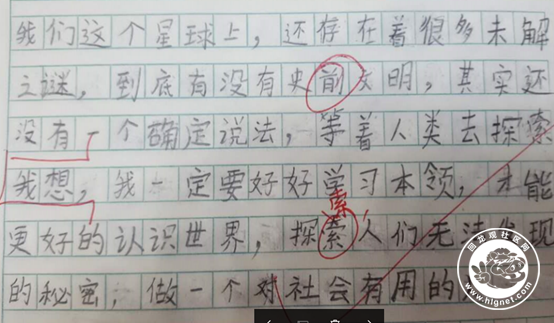 我们这个星球上，还存在着很多未解
之谜，到底有没有史前文明，其实还
没有一个确定说法，等着人类去探索
我想，我一定要好好学习本领，才能
索
更好的认识世界，探索人们无法发现
的秘密，做一个对社会有用的
回龙观社区网
www.hlgnet.com